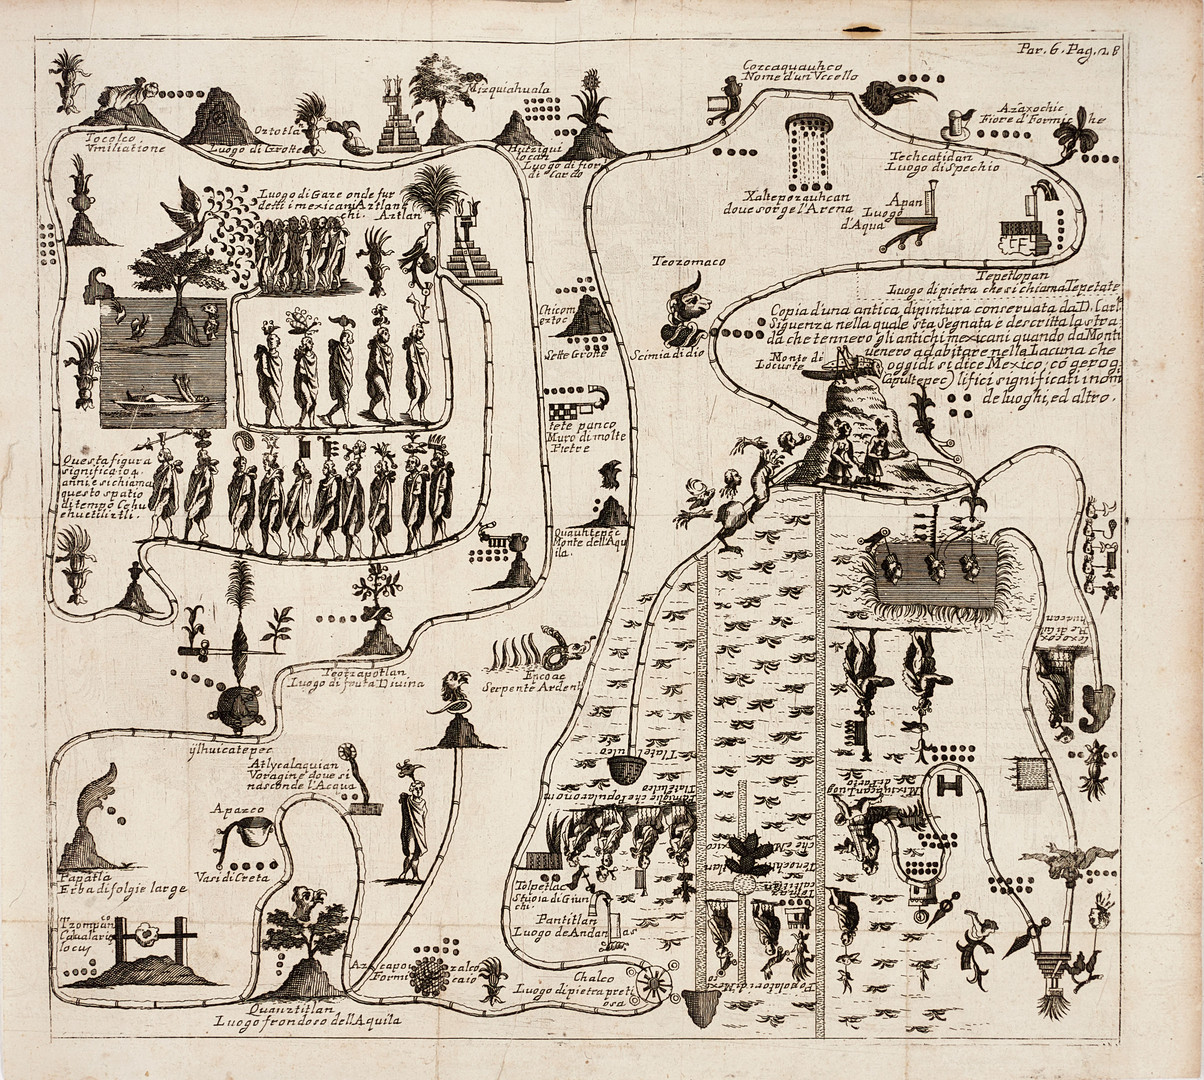 Par. 6. Pag. 28
Tocolco
Vmiliatione
Oztotla
Luogo di Grotte
Mizquiahuala
Luogo di fiori
di Cardo
Cozcaquauhco
Nome d'un Vccello
Azaxochic
Fiore d'Formiche
Techcatidan
Luogo di Spechio
Xaltepozauhcan
doue sorge l'Arena
Apan
Luogo
d'Aqua
Tepetlopan
Luogo di pietra che si chiama Tepetate
Luogo di Gaze onde fur
detti i mexicani Aztlane
chi. Aztlan
Teozomaco
Scimia di dio
Chicom
oztoc
Sette Grotte
Copia d'una antica dipintura conseruata da D. Carl
Siguenza nella quale sta segnata e descritta la stra
da che tennero gli antichi mexicani quando da Monti
uenero ad abitare nella Lacuna che
oggidi si dice Mexico; co gerog
lifici significati i nom
de luoghi, ed altro.
Monte di
Locuste
Capultepec
tete panco
Muro di molte
Pietre
Questa figura
significa 104.
anni, e si chiama
questo spatio
di tempo Cehu
ehuetiliztli.
Quauhtepec
Monte dell'Aqu
ila.
Teotzapotlan
Luogo di fruta Diuina
Encoac
Serpente Ardent
ylhuicatepec
Atlycalaquian
Voragine doue si
nasconde l'Acqua
Apazco
Vasi di Creta
Papatla
Erba di folgie large
Tzompan
Caluaria
locus
Quauztitlan
Luogo frondoso dell'Aquila
Azcapo
zalco
Formi
caio
Chalco
Luogo di pietra preti
osa
Tolpetlac
Stuoia di Giun
chi.
Pantitlan
Luogo de Andanias
Tlatelulco
Mexico